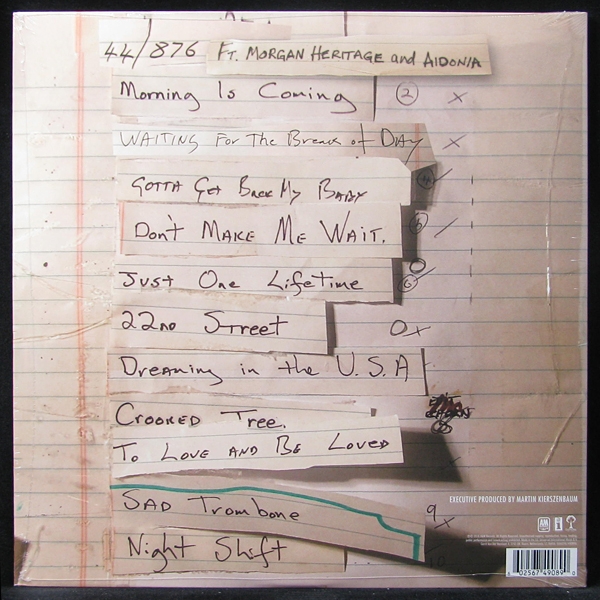 44/876 FT. MORGAN HERITAGE and AIDONIA
Morning Is Coming 2 x
WAITING For The Break of DAY x
GOTTA Get Back My BABY
Don't MAKE ME WAIT. 6
Just One Lifetime
22nd Street 0x
Dreaming in the U.S.A
CROOKED TREE.
To LOVE AND BE LOVED
EXECUTIVE PRODUCED BY MARTIN KIERSZENBAUM
SAD Trombone 9 x
A&M
Night Shift 10
6 02567 49089 0